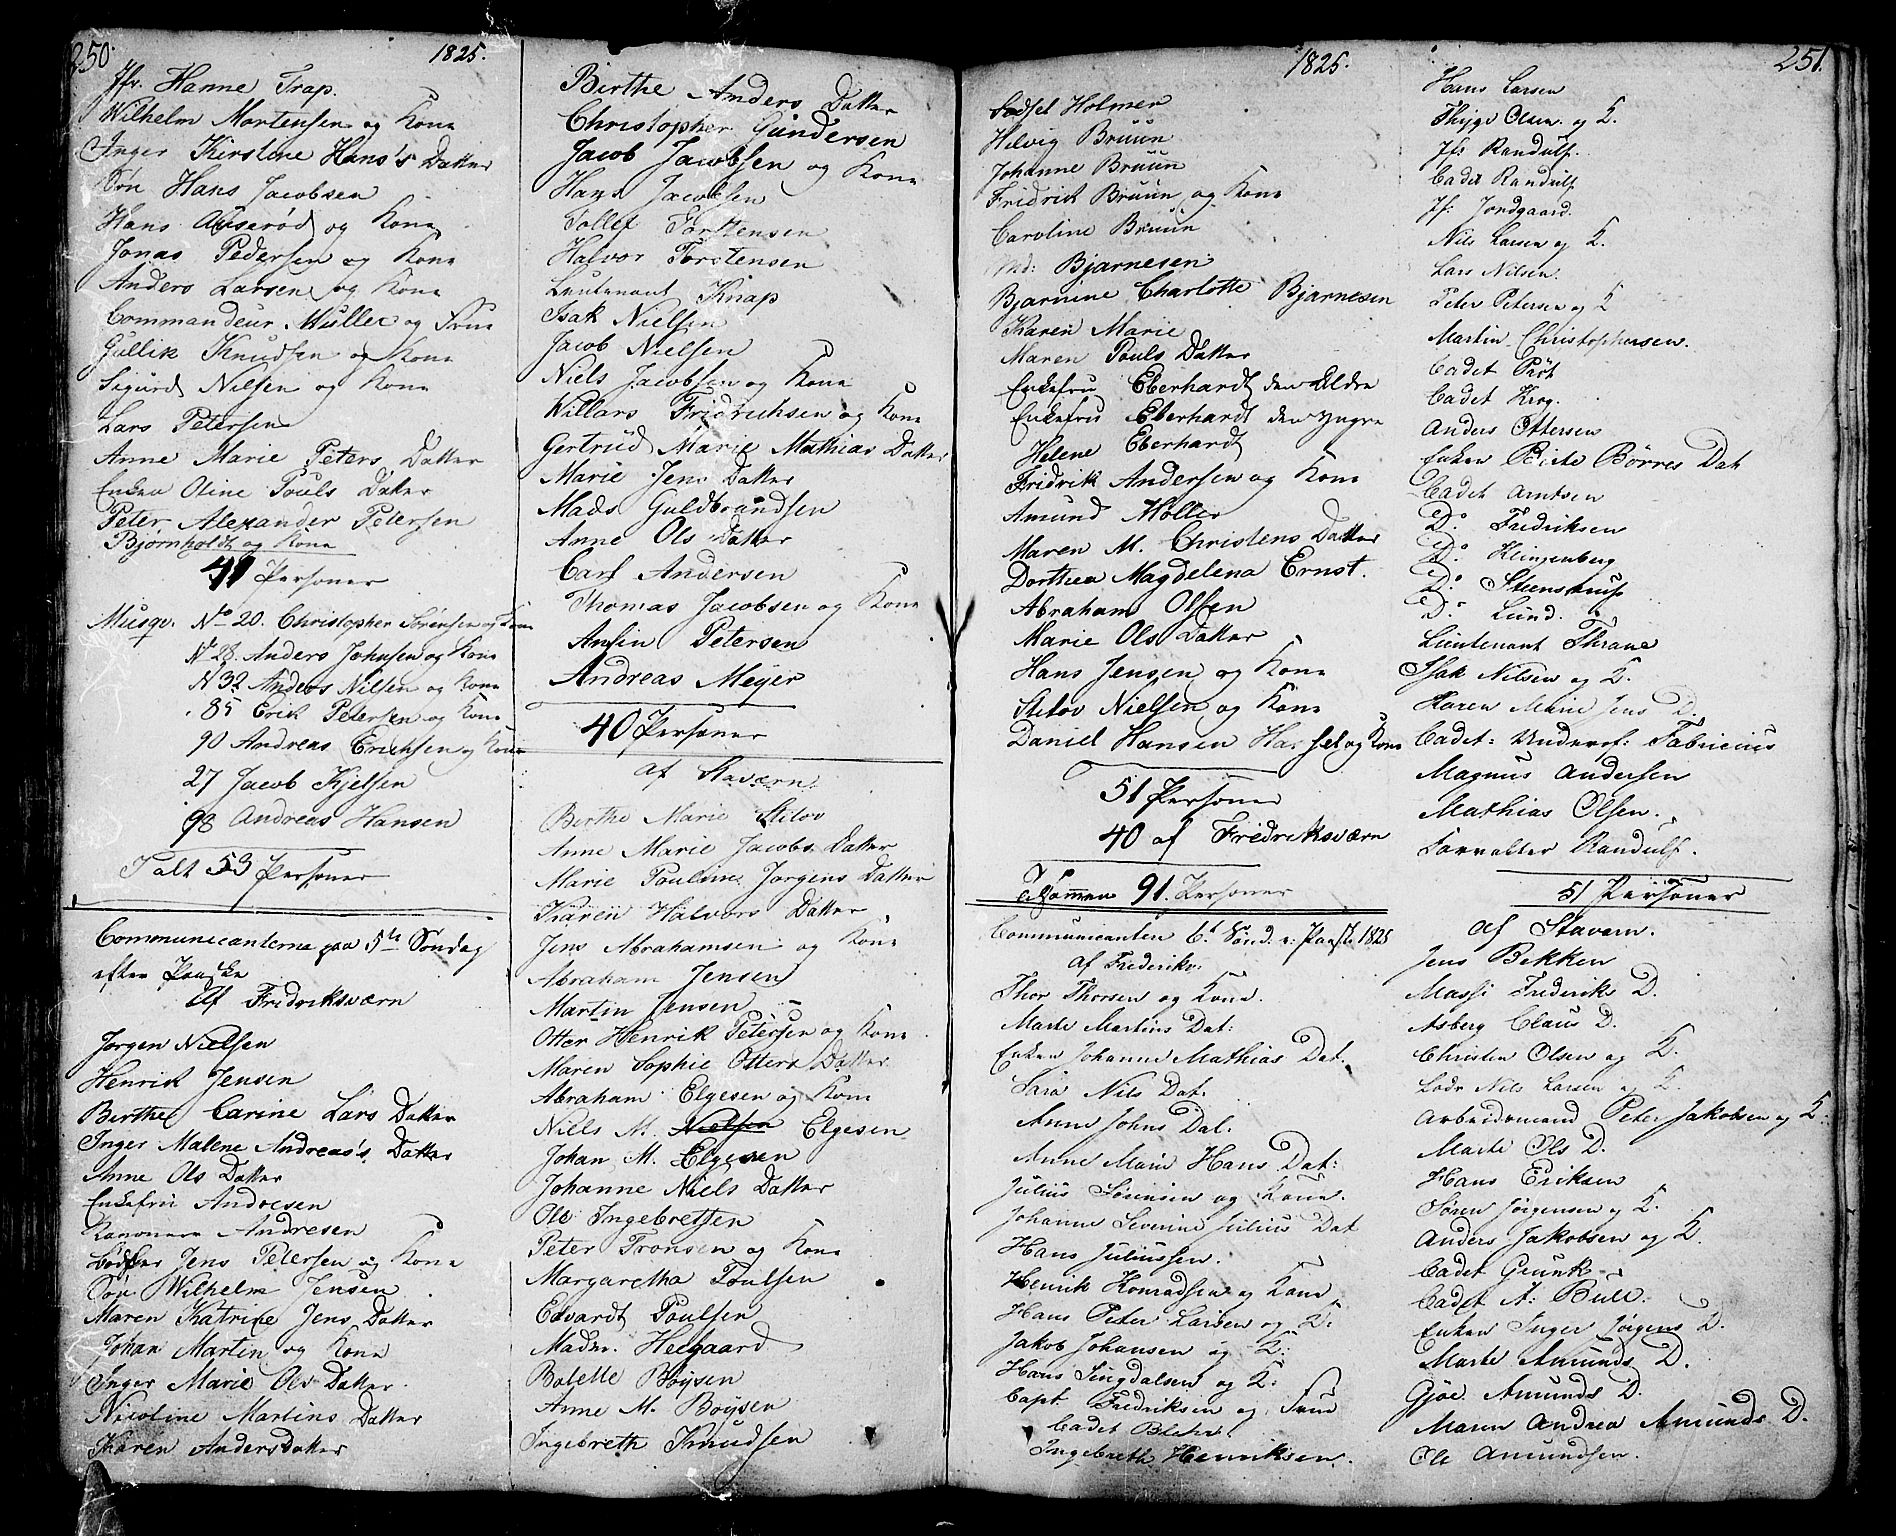 250.
1825.
Jfr. Hanne Trap.
Wilhelm Martensen og Kone
Inger Kirstine Hans's Datter
Søn Hans Jacobsen
Hans Auserød og Kone
Jonas Pedersen og Kone
Anders Larsen og Kone
Commandeur Müller og Frue
Gullik Knudsen og Kone
Sigurd Nilsen og Kone
Lars Petersen
Anne Marie Peters Datter
Enken Oline Pouls Datter
Peter Alexander Petersen
Bjørnholdt og Kone
41 Personer
Musqv. No 20. Christopher Sørensen og Kone
No 28. Anders Johnsen og Kone
N 32 Anders Nilsen og Kone
85 Erik Petersen og Kone
90 Andreas Erichsen og Kone
27 Jacob Kjelsen
98 Andreas Hansen
Talt 53 Personer
Communicanterne paa 5te Søndag
efter Paaske
Af Fridriksværn
Jørgen Nielsen
Henrik Jensen
Berthe Carine Lars Datter
Inger Malene Andreas's Datter
Anne Ols Datter
Enkefru Andresen
Kanoneer Andresen
Jens Petersen og Kone
Søn Wilhelm Jensen
Maren Katrine Jens Datter
Johan Martin og Kone
Inger Marie Ols Datter
Nicoline Martins Datter
Karen Anders Datter
Birthe Anders Datter
Christopher Gundersen
Jacob Jacobsen og Kone
Hans Jacobsen
Tollef Torstensen
Halvor Torstensen
Leutenant Knap
Isak Nielsen
Jacob Nielsen
Niels Jacobsen og Kone
Willars Fridrichsen og Kone
Gertrud Marie Mathias Datter
Marie Jens Datter
Mads Guldbrandsen
Anne Ols Datter
Carl Andersen
Thomas Jacobsen og Kone
Anfin Petersen
Andreas Meyer
40 Personer
af Staværn
Berthe Marie Stilov
Anne Marie Jacobs Datter
Marie Pouline Jørgens Datter
Karen Halvors Datter
Jens Abrahamsen og Kone
Abraham Jensen
Martin Jensen
Otter Henrik Petersen og Kone
Maren Sophie Otters Datter
Abraham Elgesen og Kone
Niels M. Nielsen Elgesen
Johan M. Elgesen
Johanne Niels Datter
Ole Ingebretsen
Peter Tronsen og Kone
Margaretha Poulsen
Edvardt Poulsen
Madm. Helgaard
Bolette Boysen
Anne M. Boysen
Ingebreth Knudsen
1825.
251.
Holmer
Helvig Bruun
Johanne Bruun
Fridrich Bruun og Kone
Caroline Bruun
Md: Bjarnesen
Bjarnine Charlotte Bjarnesen
Karen Marie
Maren Pouls Datter
Enkefru Eberhardt den Eldre
Enkefru Eberhardt den yngre
Helene Eberhardt
Fridrik Andersen og Kone
Amund Møller
Maren M. Christens Datter
Dorthea Magdelena Ernst.
Abraham Olsen
Marie Ols Datter
Hans Jensen og Kone
Stilov Nielsen og Kone
Daniel Hansen og Kone
51 Personer
40 af Fredriksværn
Tilsammen 91. Personer
Communicanter 6t Sønd. e: Paaske 1825
af Frederiksv:
Thor Thorsen og Kone.
Marte Martins Dat:
Enken Johanne Mathias Dat.
Sara Nils Dat.
Anne Johns Dat.
Anne Marie Hans Dat:
Julius Sørensen og Kone.
Johanne Severine Julius Dat
Hans Juliussen.
Henrik Konradsen og Kone
Hans Peter Larsen og K:
Jakob Johansen og K:
Hans Singdalsen og K:
Capt. Fredriksen og Frue
Cadet Blehr.
Ingebreth Henriksen.
Hans Larsen
Thyge Olsen og K.
Jf: Randulf.
Cadet Randulf
Jf: Jondgaard.
Nils Larsen og K.
Lars Nilsen.
Peter Petersen og K
Martin Christophersen.
Cadet
Cadet Krog.
Anders Ottersen
Enken Birte Børres Dat
Cadet Arntsen
Do. Fredriksen
Do. Klingenberg
Do. Steenstrup
Do. Lund.
Lieutenant Thrane
Isak Nilsen og K.
Karen Marie Jens D.
Cadet: Underof: Fabricius
Magnus Andersen
Mathias Olsen.
Forvalter Randulf.
51 Personer
af Stavern.
Jens Bekken
Massi Frederiks D.
Asberg Claus D.
Christen Olsen og K.
Lods Nils Larsen og K.
Arbeidsmand Peter Jakobsen og K.
Marte Ols D.
Hans Eriksen
Søren Jørgensen og K.
Anders Jakobsen og K.
Cadet
Cadet A: Bull.
Enken Inger Jørgens D.
Marte Amunds D.
Gjøe. Amunds D.
Maren Andrea Amunds D.
Ole Amundsen.